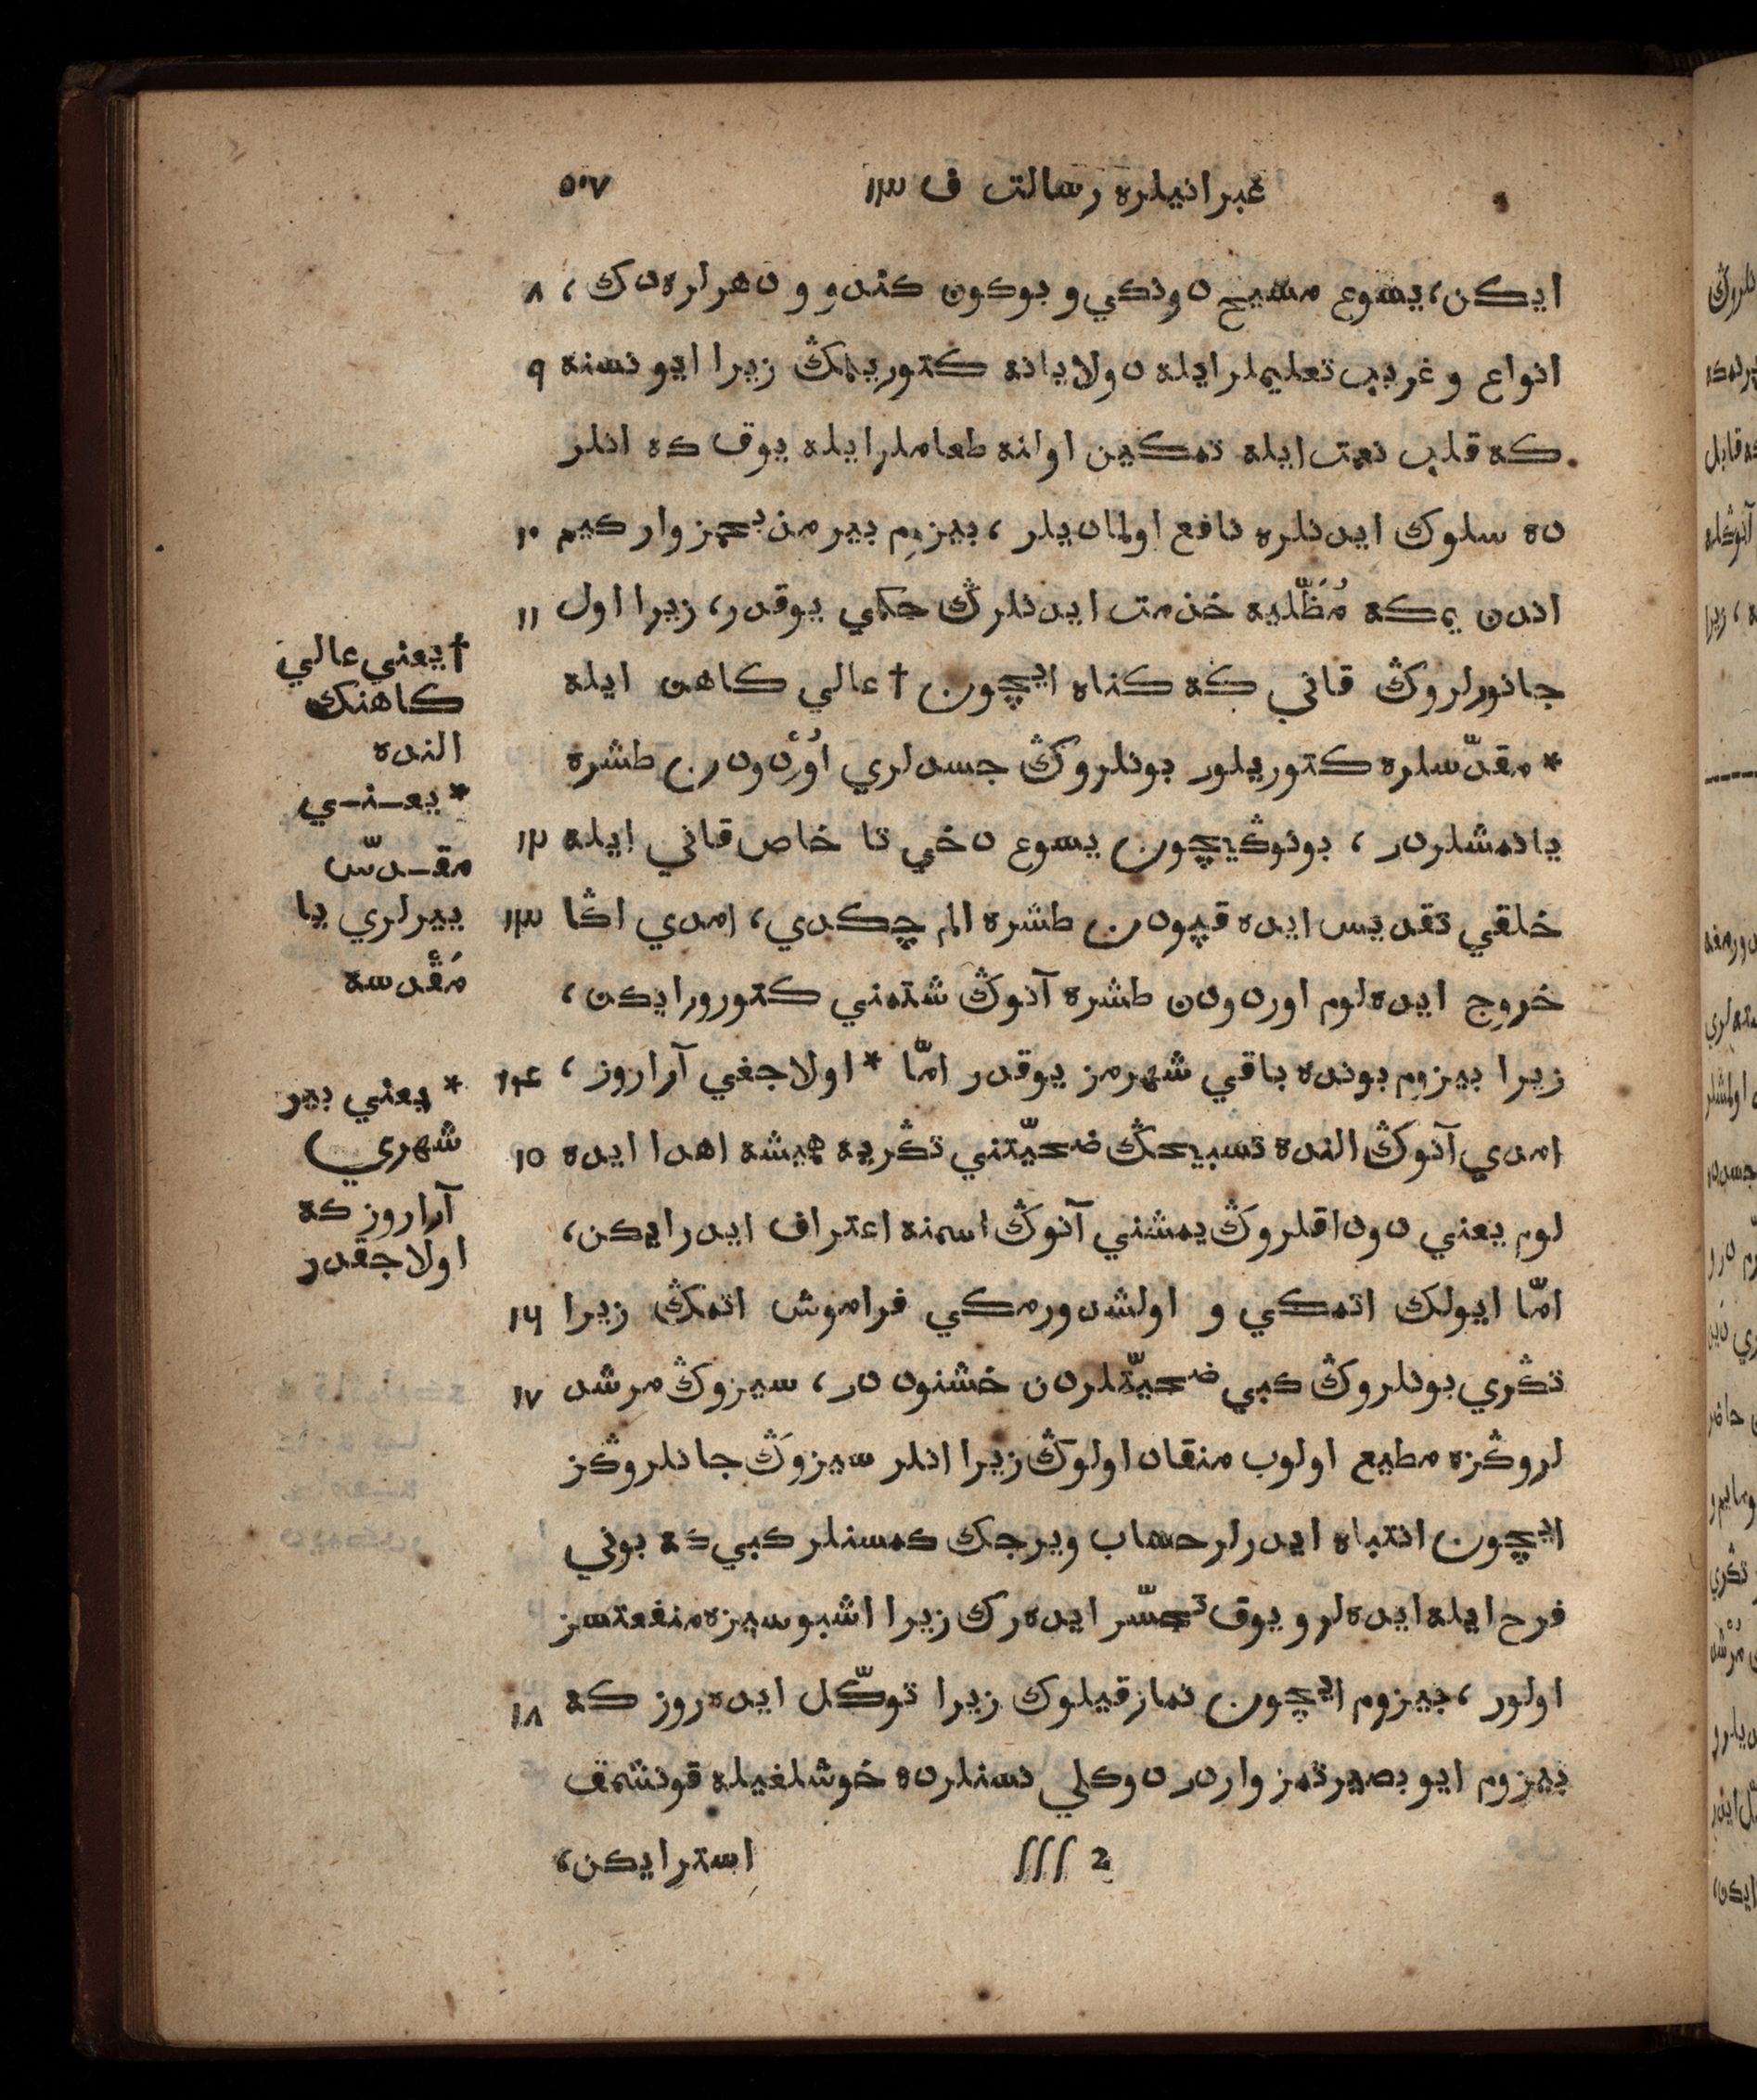 عبرانيلره رسالت ف ١٣ ٥٠٧
ايكن، يسوع مسيح دونكي و بوكون كندو و دهرلرەدك، ٨
انواع و غريب تعليملر ايله دولايانه كتوريلمڭ زيرا ايو نسنه ٩
كه قلب نعمت ايله تمكين اولنه طعاملر ايله يوق كه انلر
ده سلوك ايدنلره نافع اولماديلر، بيزم بير مذبحمز وار كيم ١٠
اندن يمكه مُظَلّيه خذمت ايدنلرڭ حكمي يوقدر، زيرا اول ١١
جانورلروڭ قاني كه كناه ايچون † عالي كاهن ايله
* مقدّسلره كتوريلور بونلروڭ جسدلري اوُرْدودن طشره
يانمشلردر، بونوڭيچون يسوع دخي تا خاص قاني ايله ١٢
خلقي تقديس ايده قپودن طشره الم چكدي، امدي اڭا ١٣
خروج ايدەلوم اوردودن طشره آنوڭ شتمني كتورور ايكن،
زيرا بيزم بونده باقي شهرمز يوقدر امّا * اولاجغي آراروز، ١٤
امدي آنوڭ الندە تسبيحڭ ضحيّتني تڭريه هميشه اهدا ايده ١٥
لوم يعني دوداقلروڭ يمشني آنوڭ اسمنه اعتراف ايدر ايكن،
امّا ايولك اتمكي و اولشدورمكي فراموش اتمڭ زيرا ١٦
تڭري بونلروڭ كبي ضحيّتلردن خشنوددر، سيزوڭ مرشد ١٧
لروڭزه مطيع اولوب منقاد اولوڭ زيرا انلر سيزوڭ جانلروڭز
ايچون انتباه ايدرلر حساب ويرجك كمسنلر كبي كه بوني
فرح ايله ايدەلر و يوق تحسّر ايدەرك زيرا اشبو سيزه منفعتسز
اولور، بيزوم ايچون نماز قيلوك زيرا توكّل ايدەروز كه ١٨
بيزوم ايو بصيرتمز واردر دوكلي نسنلرده خوشلغيله قونشمق
ʃʃʃ 2 استر ايكن،
† يعني عالي
كاهنك
الندە
* يعـنـي
مقـدّس
ييرلري يا
مَقْدسه
* يعني بير
شهري
آراروز كه
اولاجقدر